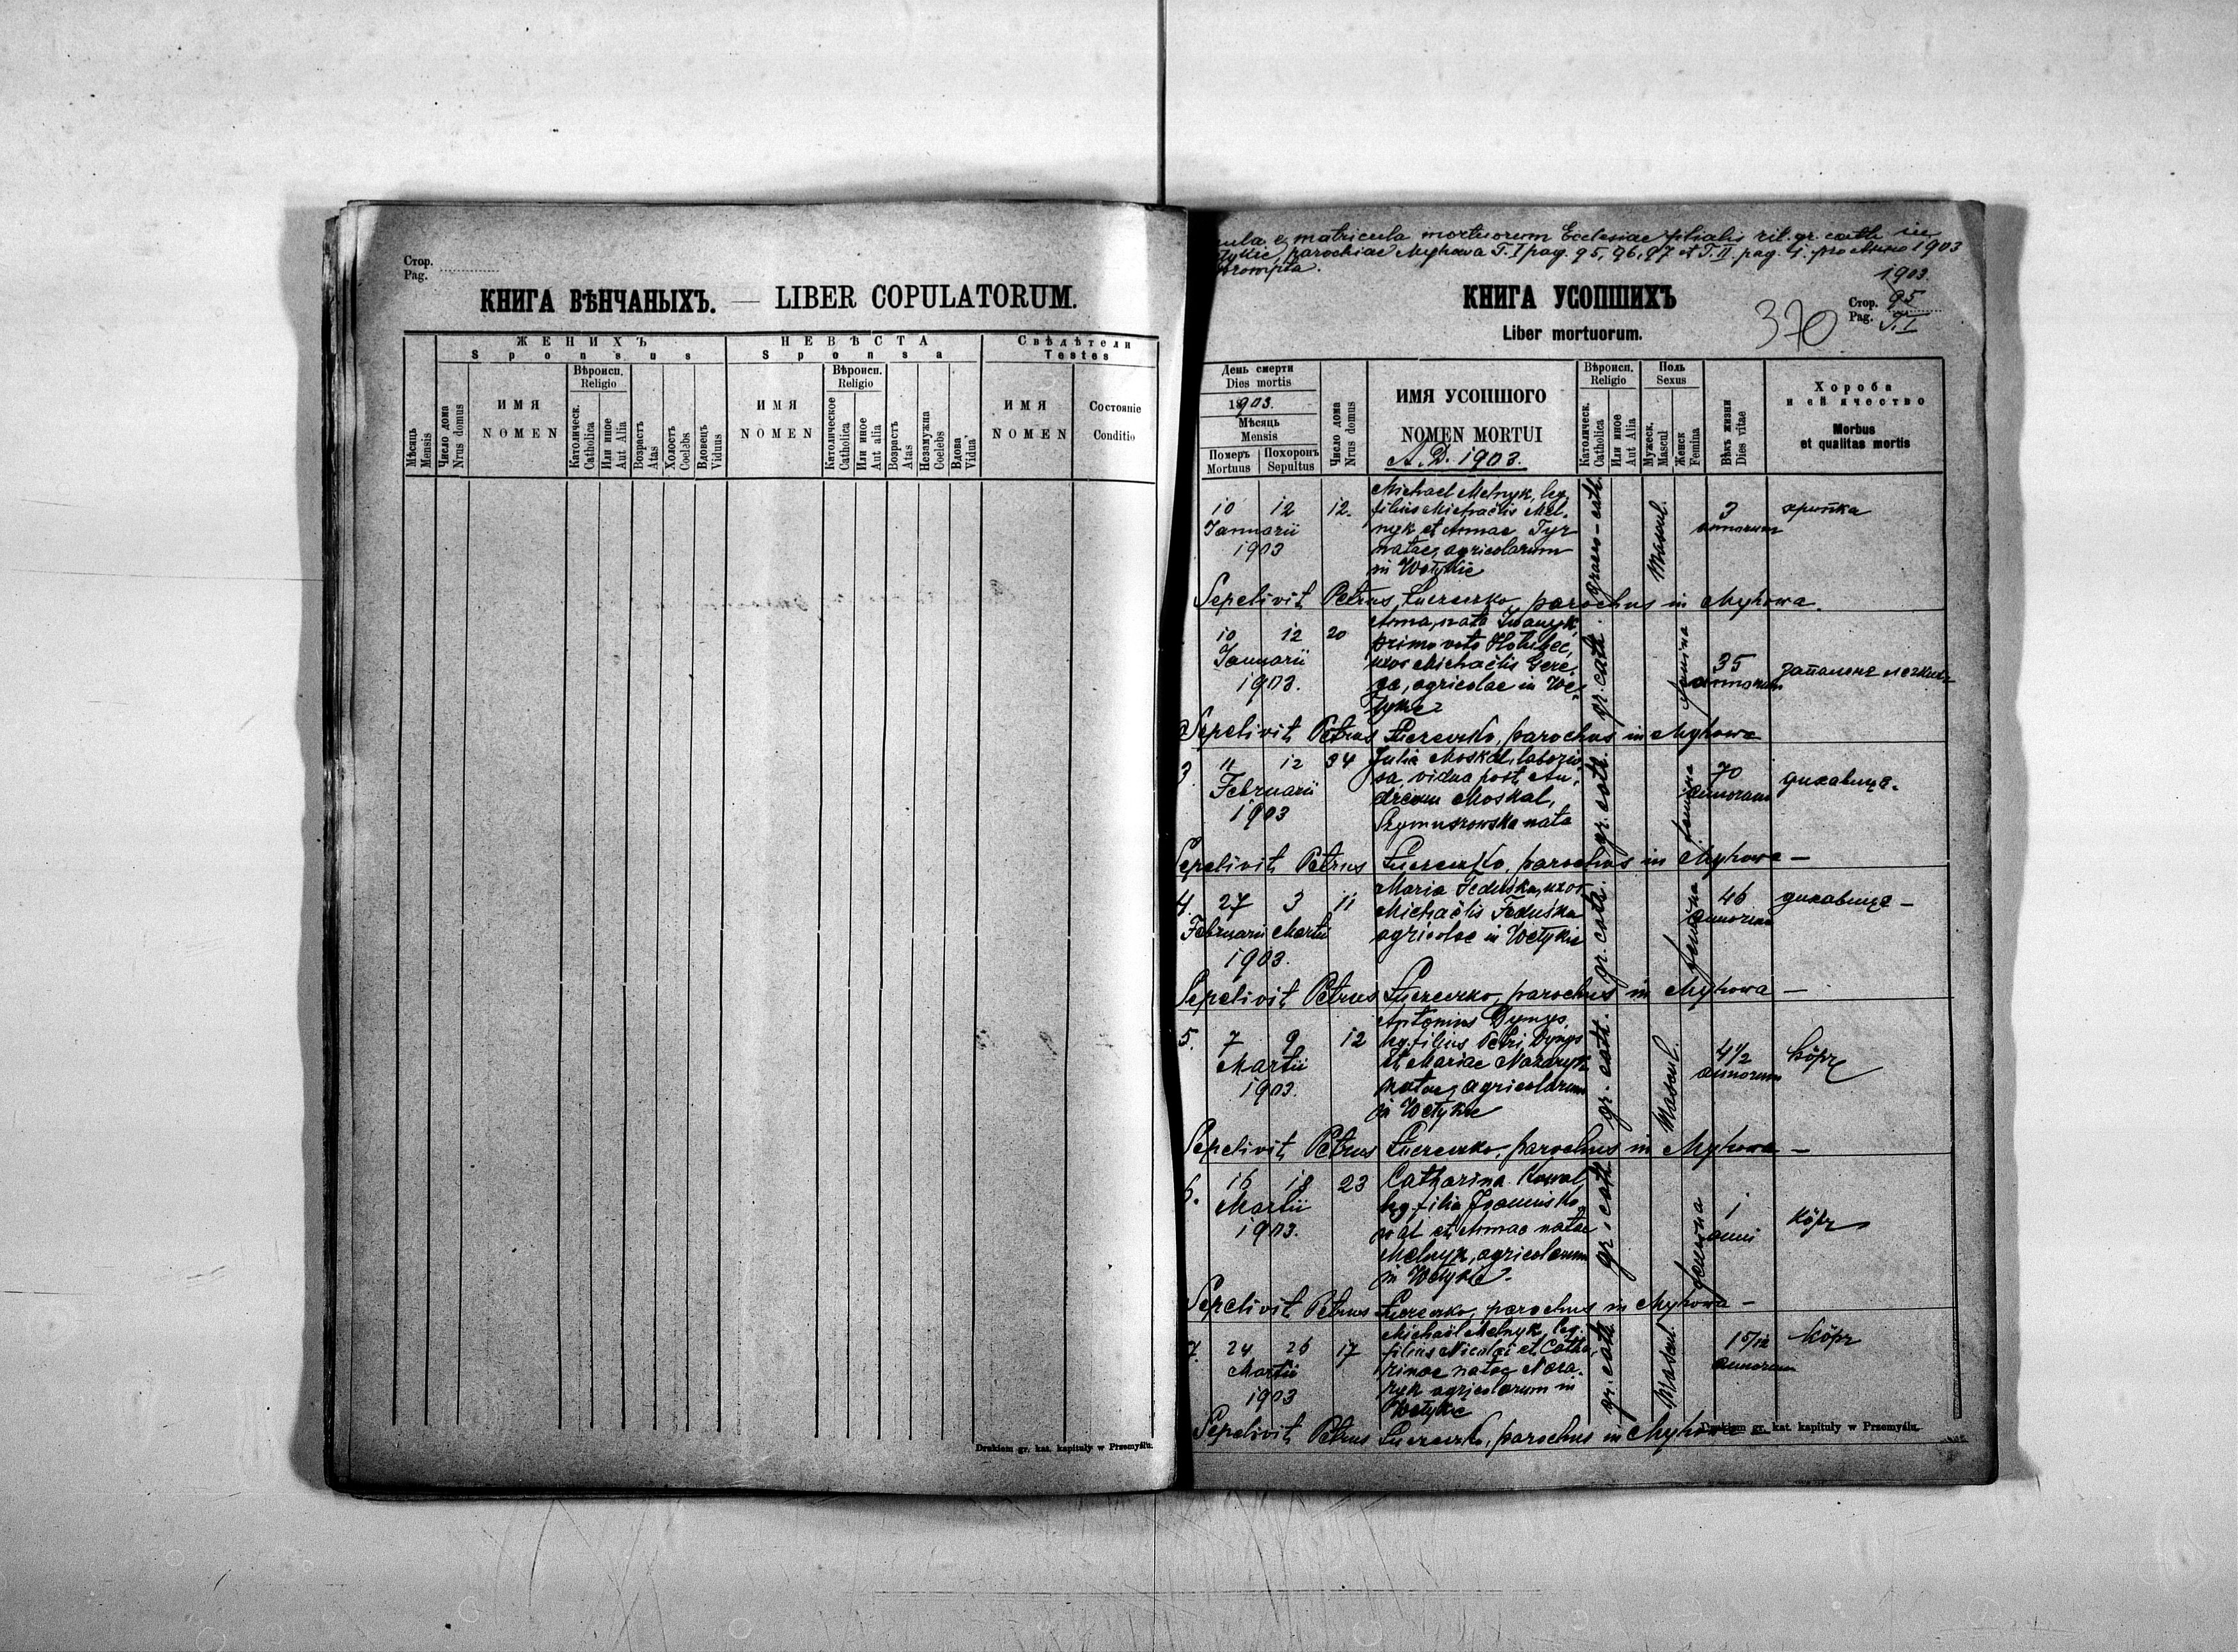 Стор.
Pag.
КНИГА ВѢНЧАНЫХЪ. — LIBER COPULATORUM.
ЖЕНИХЪ
Sponsus
НЕВѢСТА
Sponsa
Свѣдѣтели
Testes
Мѣсяць
Mensis
Число дома
Nrus domus
ИМЯ
NOMEN
Вѣроисп.
Religio
Католическ.
Catholica
Или иное
Aut Alia
Возрастъ
Atas
Холостъ
Coelebs
Вдовець
Viduus
ИМЯ
NOMEN
Вѣроисп.
Religio
Католическое
Catholica
Или иное
Aut alia
Возрастъ
Atas
Незамужна
Coelebs
Вдова
Vidua
ИМЯ
NOMEN
Состояніе
Conditio
Drukiem gr. kat. kapituły w Przemyślu.
matricula mortuorum Ecclesiae filialis rit. gr. cath. in
parochiae Myhowa T. I pag. 95, 96, 97 et T. II. pag. 1. pro anno 1903
prompta.
1903.
КНИГА УСОПШИХЪ
Liber mortuorum.
370
Стор. 95
Pag. T. I
День смерти
Dies mortis
1903.
Мѣсяць
Mensis
Померъ
Mortuus
Похоронъ
Sepultus
Число дома
Nrus domus
ИМЯ УСОПШОГО
NOMEN MORTUI
A. D. 1903.
Вѣроисп.
Religio
Католическ.
Catholica
Или иное
Aut Alia
Полъ
Sexus
Мужеск.
Mascul
Женск
Femina
Вѣкъ жизни
Dies vitae
Хороба
и ей ячество
Morbus
et qualitas mortis
10 12 12. Michael Melnyk, leg.
filius Michaëlis Mel-
Januarii nyk et Annae Tyr
1903 natae, agricolarum
in Wołykie
graeco-cath. Mascul. 3 annorum
Sepelivit Petrus parochus in Myhowa.
10 12 20 Anna, nata Iwanyk,
primo voto
Januarii uxor Michaëlis Gere-
1903. ga, agricolae in Wo-
łykie
gr. cath. femina 35 annorum
Sepelivit Petrus parochus in Myhowa
3 11 12 34 Julia Moskal, laborio
sa, vidua post An-
Februarii dream Moskal,
1903 nata
gr. cath. femina 70 annorum
Sepelivit Petrus parochus in Myhowa —
4. 27 3 11 Maria Feduśka, uxor
Michaëlis Feduśka
Februarii Martii agricolae in Wołykie
1903.
gr. cath. femina 46 annorum
Sepelivit Petrus parochus in Myhowa —
5. 7 9 12 Antonius Dymys,
leg. filius Petri Dymys
Martii et Mariae Nazaryk
1903. natae, agricolarum
in Wołykie
gr. cath. Mascul. 4½ annorum кöрѣ
Sepelivit Petrus parochus in Myhowa —
6. 16 18 23 Catharina Kowal,
Martii leg. filia Joannis Ko-
1903. wal et Annae natae
Melnyk, agricolarum
in Wołykie.
gr. cath femina 1 anni кöрѣ
Sepelivit Petrus parochus in Myhowa —
7. 24 26 17 Michaël Melnyk, leg.
filius Nicolai et Catha-
Martii rinae natae Naza-
1903 ryk agricolarum in
Wołykie
gr. cath. Mascul. 1 5/12 annorum кöрѣ
Sepelivit Petrus parochus in Myhowa
Drukiem gr. kat. kapituły w Przemyślu.